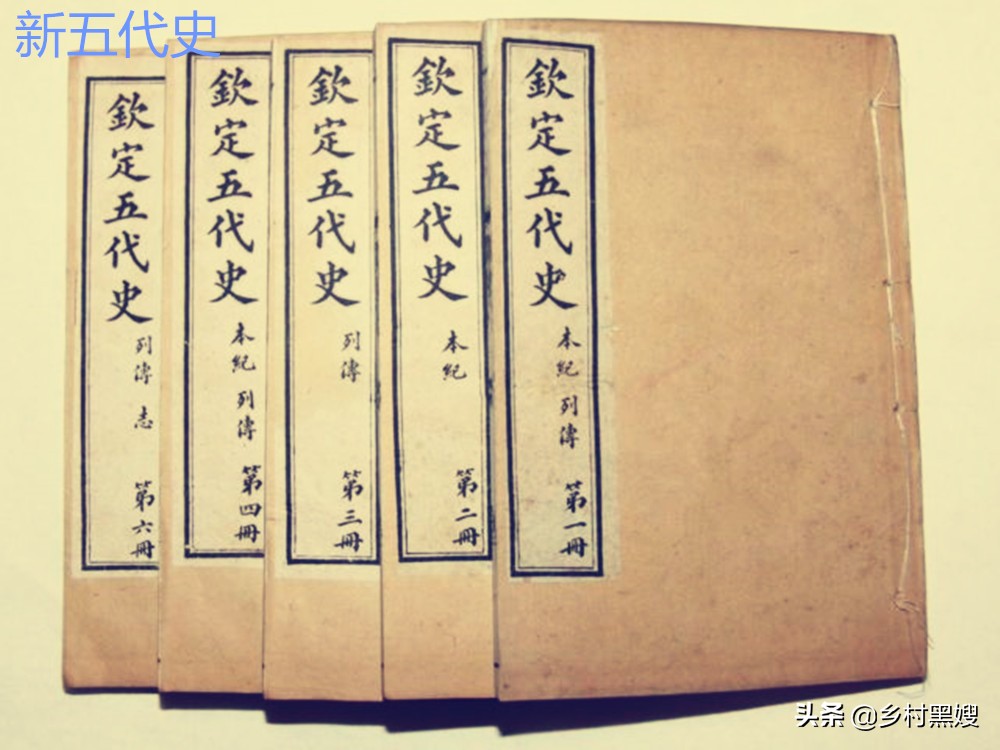 新五代史
欽定五代史
本紀 列傳
第一冊
欽定五代史
本紀
第二冊
欽定五代史
列傳
第三冊
欽定五代史
本紀 列傳
第四冊
欽定五代史
列傳 志
第六冊
头条 @乡村黑嫂